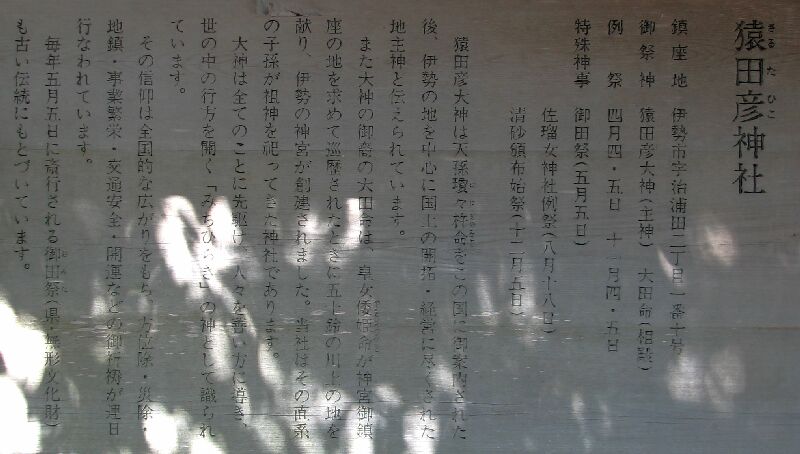 猿田彦神社
鎮座地 伊勢市宇治浦田二丁目一番十号
御祭神 猿田彦大神(主神) 大田命(相殿)
例祭 四月四・五日 十一月四・五日
特殊神事 御田祭(五月五日)
佐瑠女神社例祭(八月十八日)
清砂頒布始祭(十二月五日)
猿田彦大神は天孫瓊々杵命をこの国に御案内された
後、伊勢の地を中心に国土の開拓・経営に尽くされた
地主神と伝えられています。
また大神の御裔の大田命は、皇女倭姫命が神宮御鎮
座の地を求めて巡歴されたときに五十鈴の川上の地を
献り、伊勢の神宮が創建されました。当社はその直系
の子孫が祖神を祀ってきた神社であります。
大神は全てのことに先駆け、人々を善い方に導き、
世の中の行方を開く「みちひらき」の神として識られ
ています。
その信仰は全国的な広がりをもち、方位除・災除・
地鎮・事業繁栄・交通安全・開運などの御祈祷が連日
行なわれています。
毎年五月五日に斎行される御田祭(県・無形文化財)
も古い伝統にもとづいています。